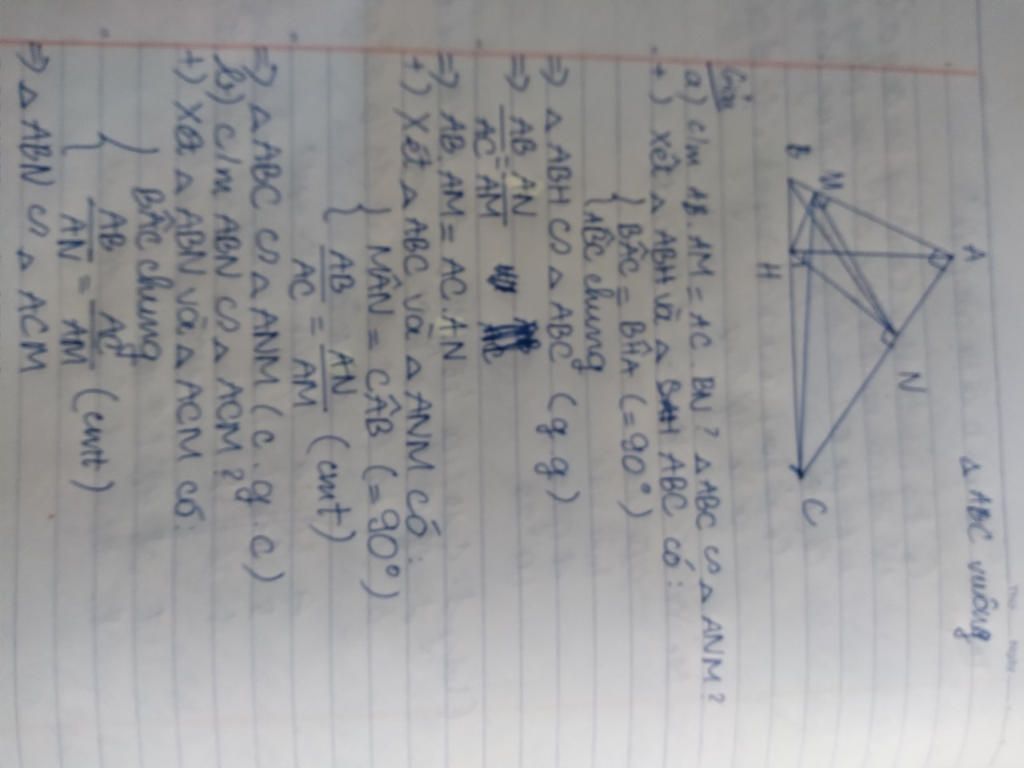 Δ ABC vuông
A
B
M
H
N
C
Giải
a) c/m AB.AM = AC.BN? Δ ABC ᔕ Δ ANM?
+) Xét Δ ABH và Δ ABC có:
{ BÂC = BĤA (=90°)
AB̂C chung
=> Δ ABH ᔕ Δ ABC (g.g)
=> AB/AC = AN/AM
=> AB.AM = AC.AN
+) Xét Δ ABC và Δ ANM có:
{ MÂN = CÂB (=90°)
AB/AC = AN/AM (cmt)
=> Δ ABC ᔕ Δ ANM (c.g.c)
b) c/m ABN ᔕ Δ ACM?
+) Xét Δ ABN và Δ ACM có:
{ BÂC chung
AB/AN = AC/AM (cmt)
=> Δ ABN ᔕ Δ ACM